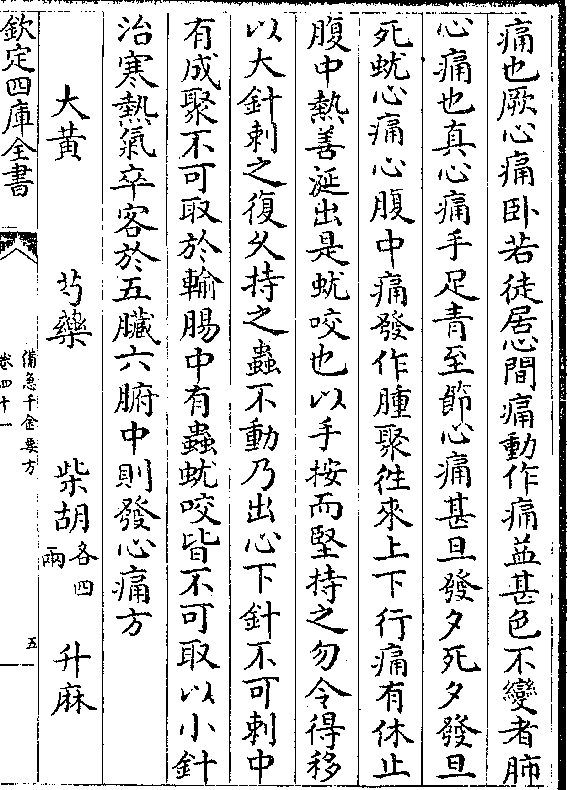 痛也厥心痛卧若徒居心間痛動作痛益甚色不變者肺
心痛也真心痛手足青至節心痛甚旦發夕死夕發旦
死蚘心痛心腹中痛發作腫聚徃來上下行痛有休止
腹中熱善涎出是蚘咬也以手按而堅持之勿令得移
以大針刺之復乆持之蟲不動乃出心下針不可刺中
有成聚不可取於輸腸中有蟲蚘咬皆不可取以小針
治寒熱氣卒客於五臟六腑中則發心痛方
大黃 芍藥 柴胡各四兩 升麻
欽定四庫全書
備急千金要方
卷四十一
五